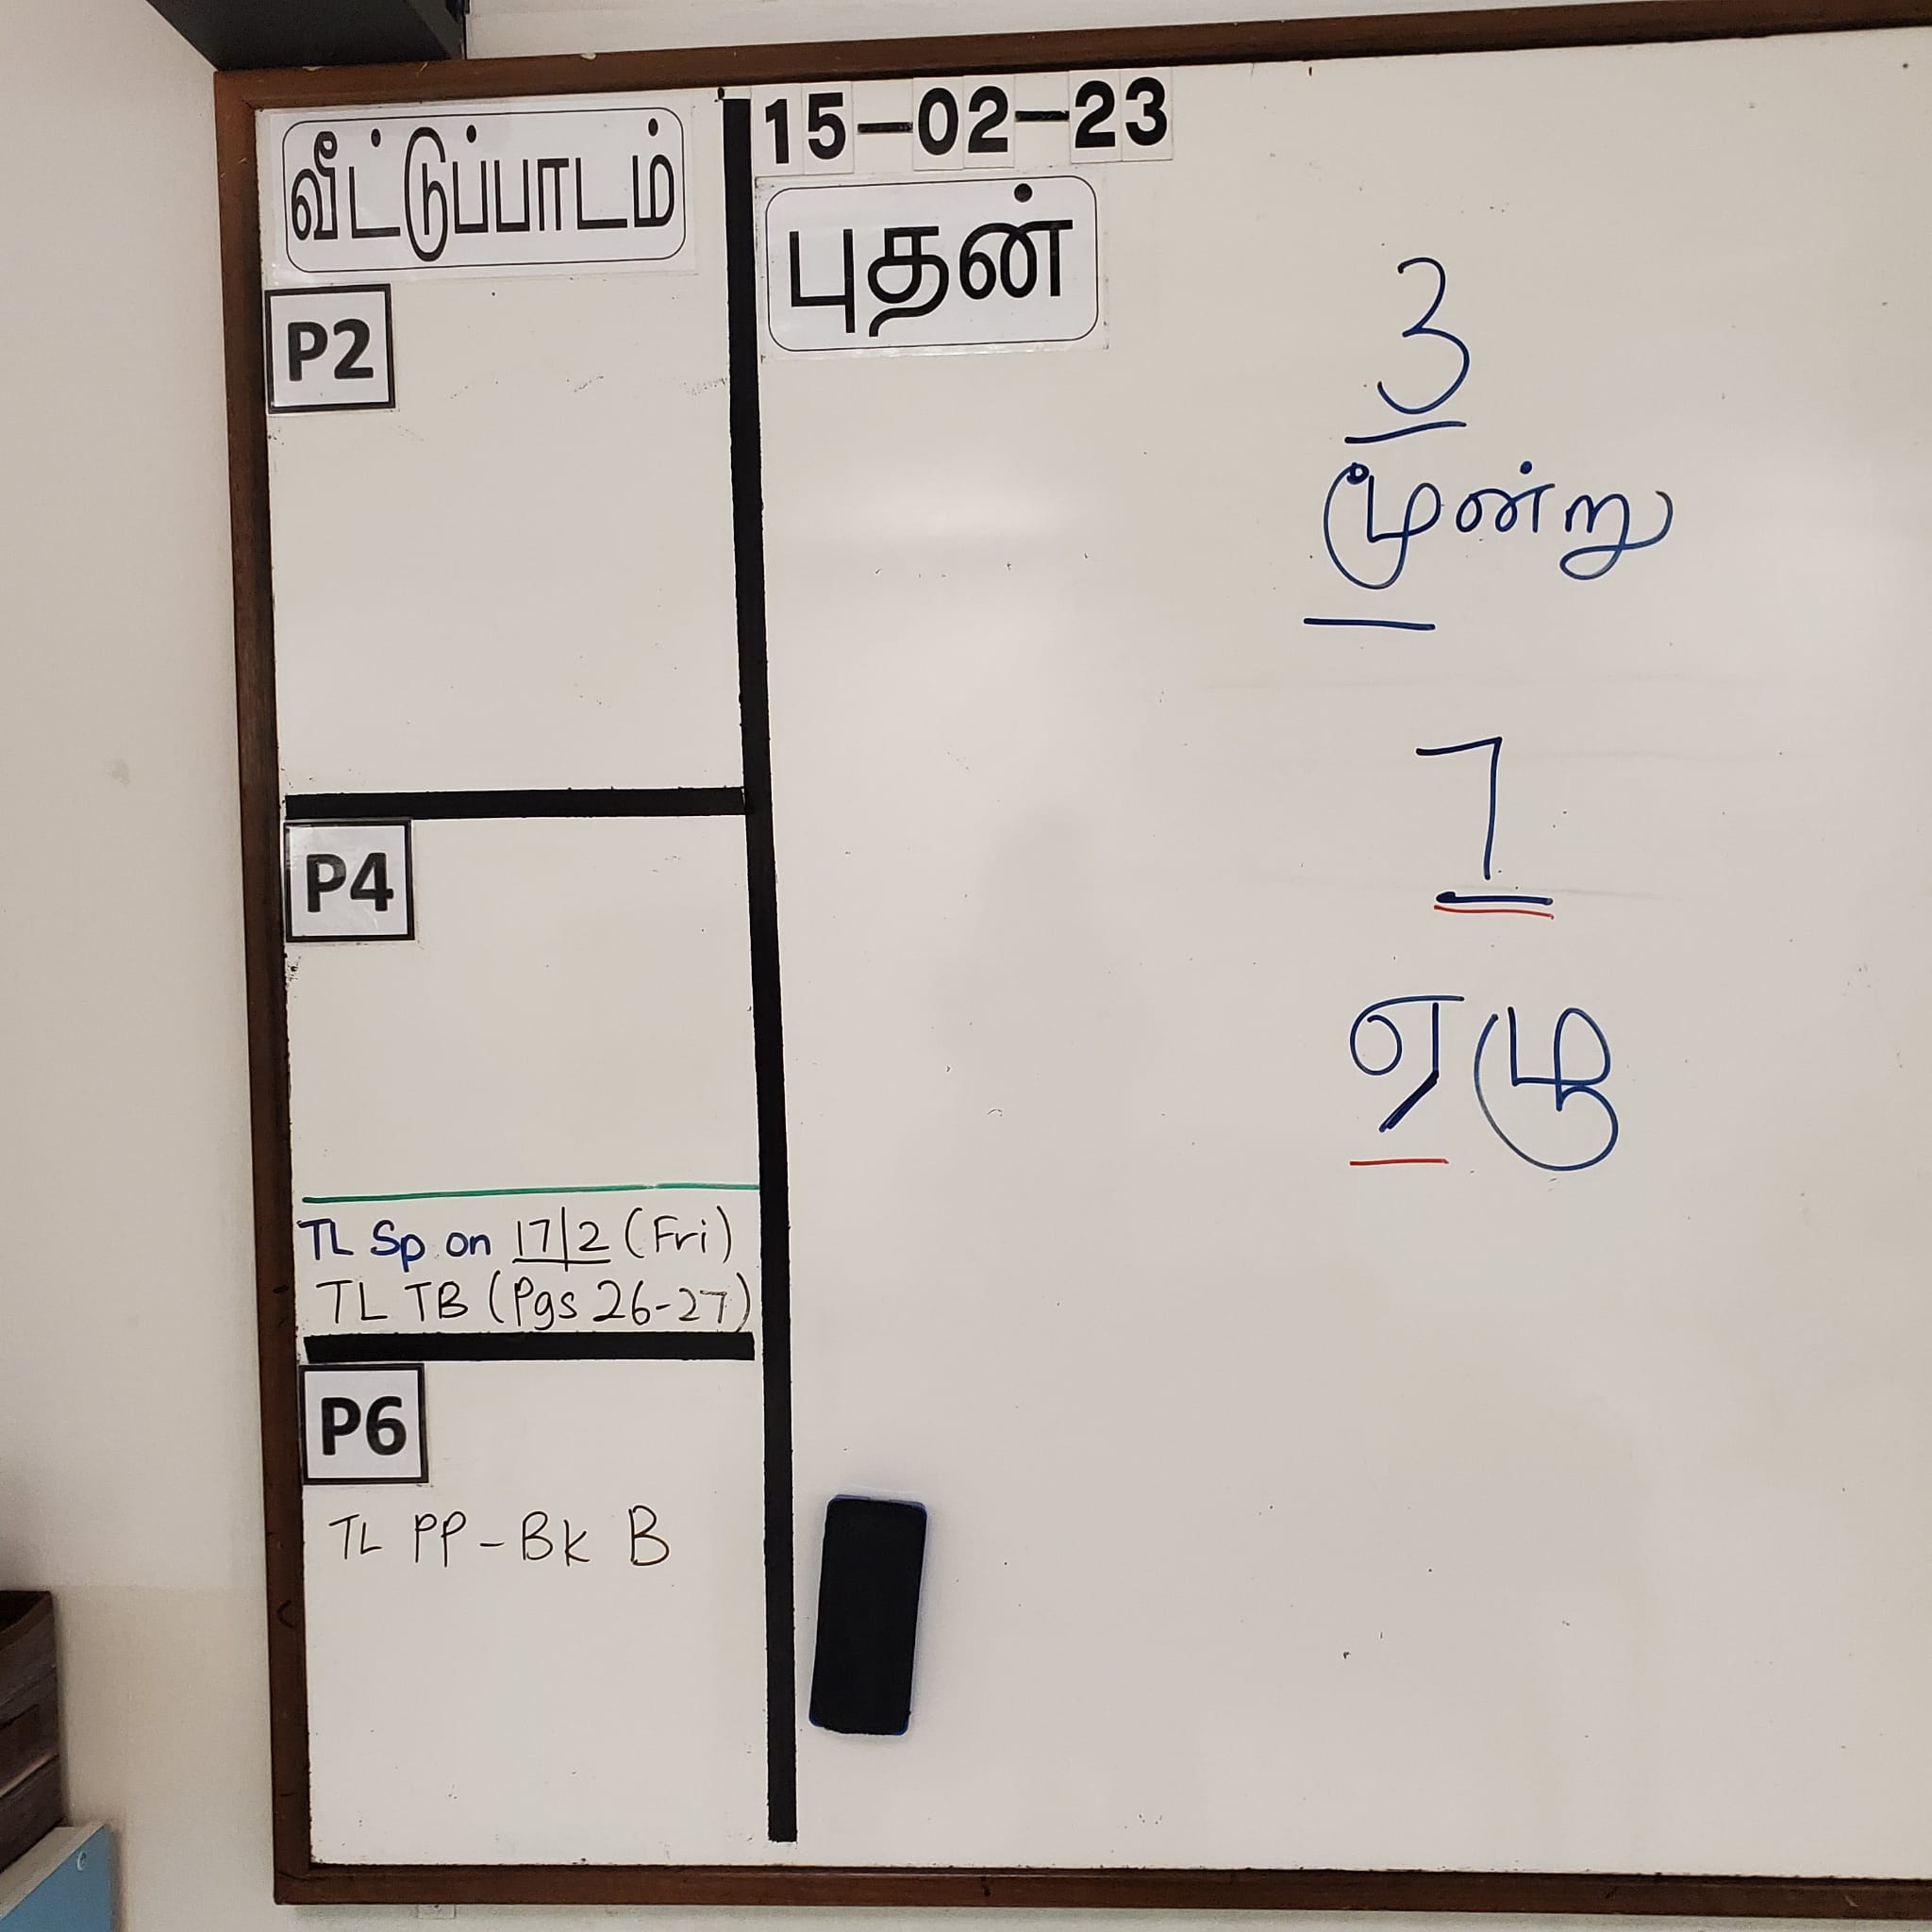 வீட்டுப்பாடம்
P2
P4
TL Sp on 17/2 (Fri)
TL TB (Pgs 26-27)
P6
TL PP - Bk B
15-02-23
புதன்
3
மூன்று
7
ஏழு